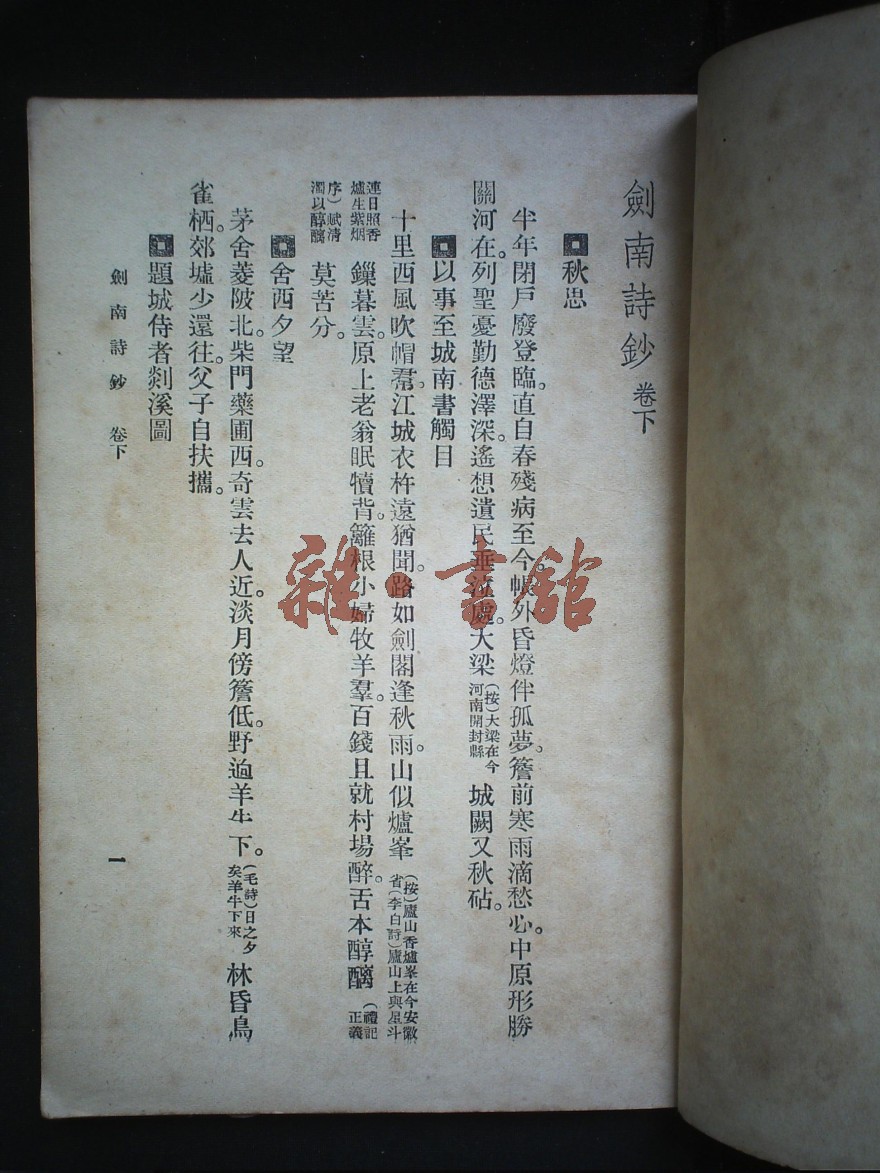 劍南詩鈔 卷下
秋思
半年閉戶廢登臨。直自春殘病至今。帳外昏燈伴孤夢。簷前寒雨滴愁心。中原形勝
關河在。列聖憂勤德澤深。遙想遺民垂泣處。大梁(按)大梁在今河南開封縣城闕又秋砧。
以事至城南書觸目
十里西風吹帽帬。江城衣杵遠猶聞。路如劍閣逢秋雨。山似爐峯(按)廬山香爐峯在今安徽省(李白詩)廬山上與星斗
連日照香爐生紫烟鏁暮雲。原上老翁眠犢背。籬根小婦牧羊羣。百錢且就村場醉。舌本醇醨(禮記正義
序)賦清濁以醇醨莫苦分。
舍西夕望
茅舍菱陂北。柴門藥圃西。奇雲去人近。淡月傍簷低。野迥羊牛下。(毛詩)日之夕矣羊牛下來林昏鳥
雀栖。郊墟少還往。父子自扶攜。
題城侍者剡溪圖
劍南詩鈔 卷下 一
雜·書館